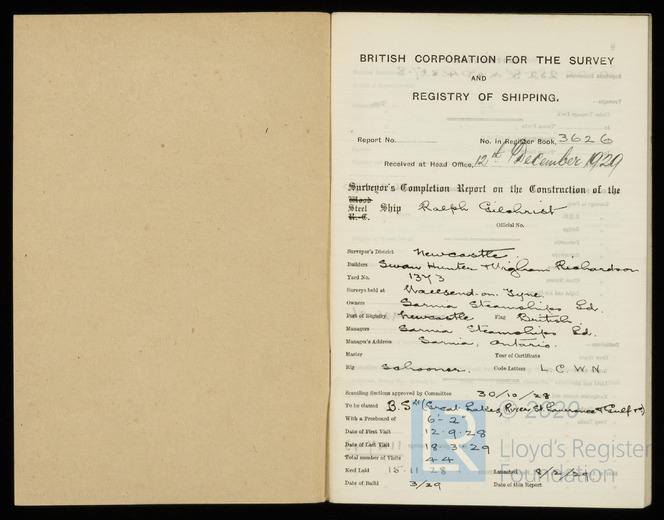 BRITISH CORPORATION FOR THE SURVEY
AND
REGISTRY OF SHIPPING.
Report No. No. in Register Book, 3626
Received at Head Office, 12th December 1929
Surveyor's Completion Report on the Construction of the
Wood
Steel Ship Ralph Gilchrist
R.-C.
Official No.
Surveyor's District Newcastle.
Builders Swan Hunter & Wigham Richardson
Yard No. 1373
Surveys held at Wallsend-on-Tyne
Owners Sarnia Steamships Ld.
Port of Registry Newcastle Flag British
Managers Sarnia Steamships Ld.
Manager's Address Sarnia, Ontario.
Master Year of Certificate
Rig Schooner. Code Letters L C W N
Scantling Sections approved by Committee 30/10/28
To be classed B.S. (Great Lakes, River St Lawrence & Gulf
With a Freeboard of 6-2
Date of First Visit 12-9-28
Date of Last Visit 18-3-29
Total number of Visits 44
Keel Laid 15-11-28 Launched 8/2/29
Date of Build 3/29 Date of this Report
© 2020
LR
Lloyd's Register
Foundation